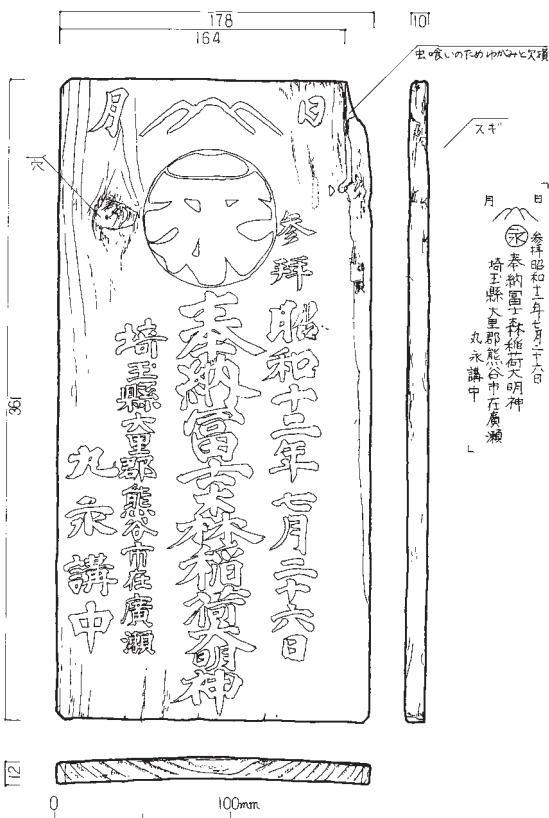 178
164
10
虫喰いのためゆがみと欠損
スギ
穴
361
12
日
月
永
参拝 昭和十二年七月二十六日
奉納冨士森稲荷大明神
埼玉縣大里郡熊谷市在廣瀬
丸永講中
「
日
月
永
参拝昭和十二年七月二十六日
奉納冨士森稲荷大明神
埼玉縣大里郡熊谷市在廣瀬
丸永講中
」
0 100mm